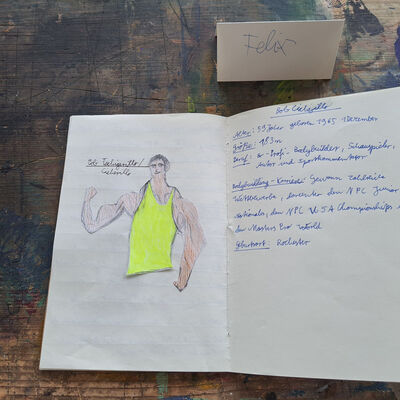 Felix
Bob Cicherillo
Alter: 59 Jahre geboren 1965 Dezember
Größe: 1,83m
Beruf: Ex-Profi-Bodybuilder, Schauspieler,
Autor und Sportkommentator
Bodybuilding-Karriere: Gewann zahlreiche
Wettbewerbe, darunter den NPC Junior
Nationals, den NPC USA Championships
den Masters Pro World
Geburtsort: Rochester
Bob
Cicherillo